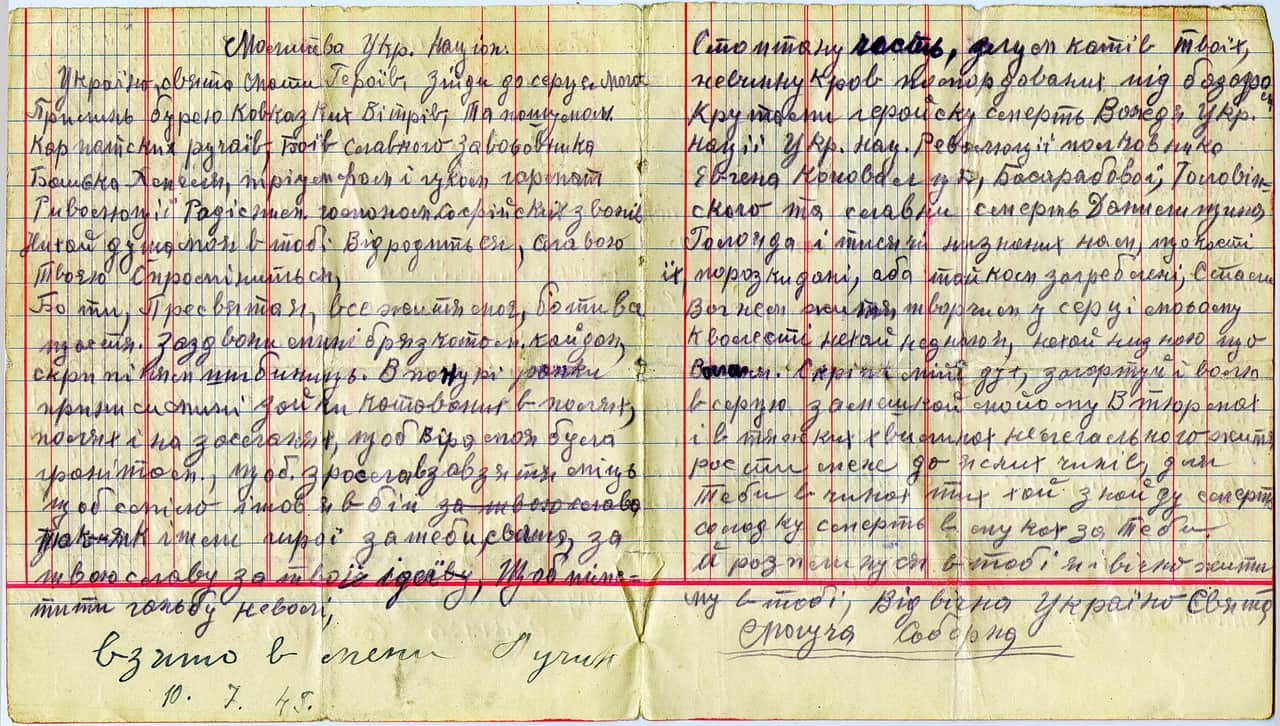 Молитва Укр. Націон.
Україно, свята мати Героїв, зійди до серця мого
Прилинь бурею Кавказких Вітрів, та шумом
Карпатских ручаїв, Боїв славного завойовника
Батька Хмеля, тріумфом і гуком гармат
Революції Радісним гомоном Софійських звонів
Нихай душа моя в тобі Відродиться, славою
твоєю Спромінится,
Бо ти, Пресвятая, все життя моя, бо ти вся
щастя. Задзвони мині брязкотом кайдан,
скрипінням шибиниць. В понурі ранки
принеси мині зойки катованих в
і на засланях, щоб Віра моя була
гранітом, щоб зросла завзяття міць
щоб сміло ішов я в бій за твою славу
так як ішли гирої за тебе, свята, за
твою славу за твої ідеї, Щоб пімс-
тити ганьбу неволі,
взято в мени Лучин
10. 7. 45.
Стоптану честь, глум катів твоїх,
невинну Кров під базаро
Крутами геройску смерть Вождя Укр.
Нації Укр. Нац. Революції полковника
Євгена Коновальця, Басарабової, Головін-
ского та славни смерть Данилишина
Голояда і тисячі незнаних нам, що кості
їх порозкидані, або тайком загреблені, Спали
Вогнем життя творчим у серці мойому
Кволесті нехай не знаю, що
Скріпи мій дух, загартуй волю
в серцю замешкай мойому В тюрмах
і в тяжких хвилинах нелегального життя
рости мене до ясних чинів, для
Теби в чинах тих хай знайду смерть
солодку смерть в муках за Теби.
Й розплинуся в тобі я і вічно жити
му в тобі, Відвічна Україно Свята
Могуча Соборна